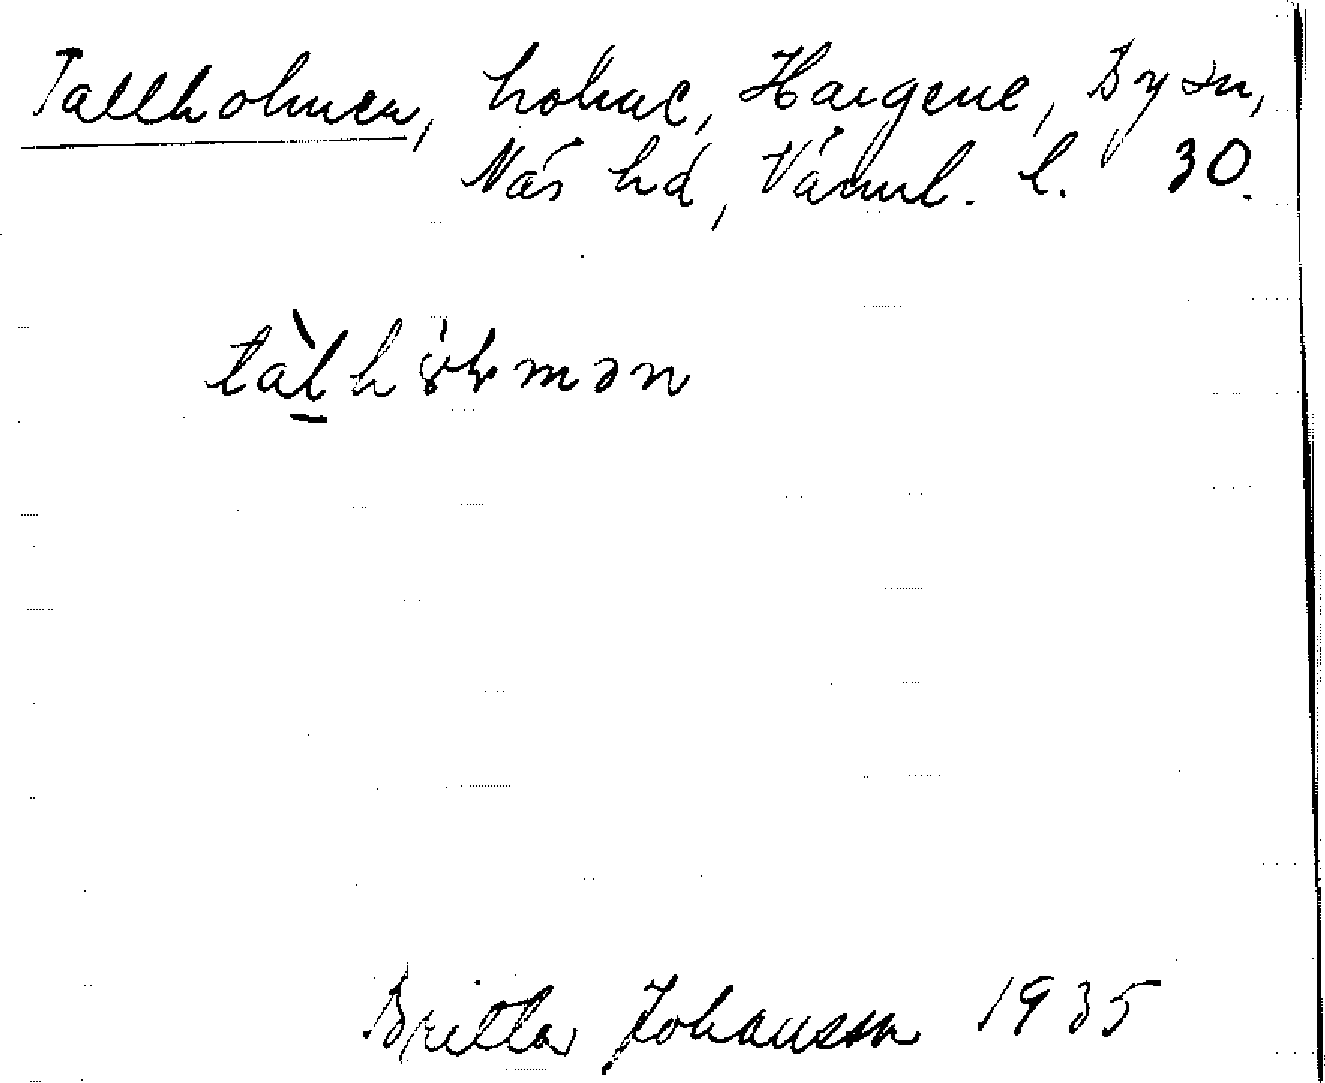 Tallholmen, holme, Hargene, By sn,
Näs hd, Värml. l. 30.
Britta Johansson 1935